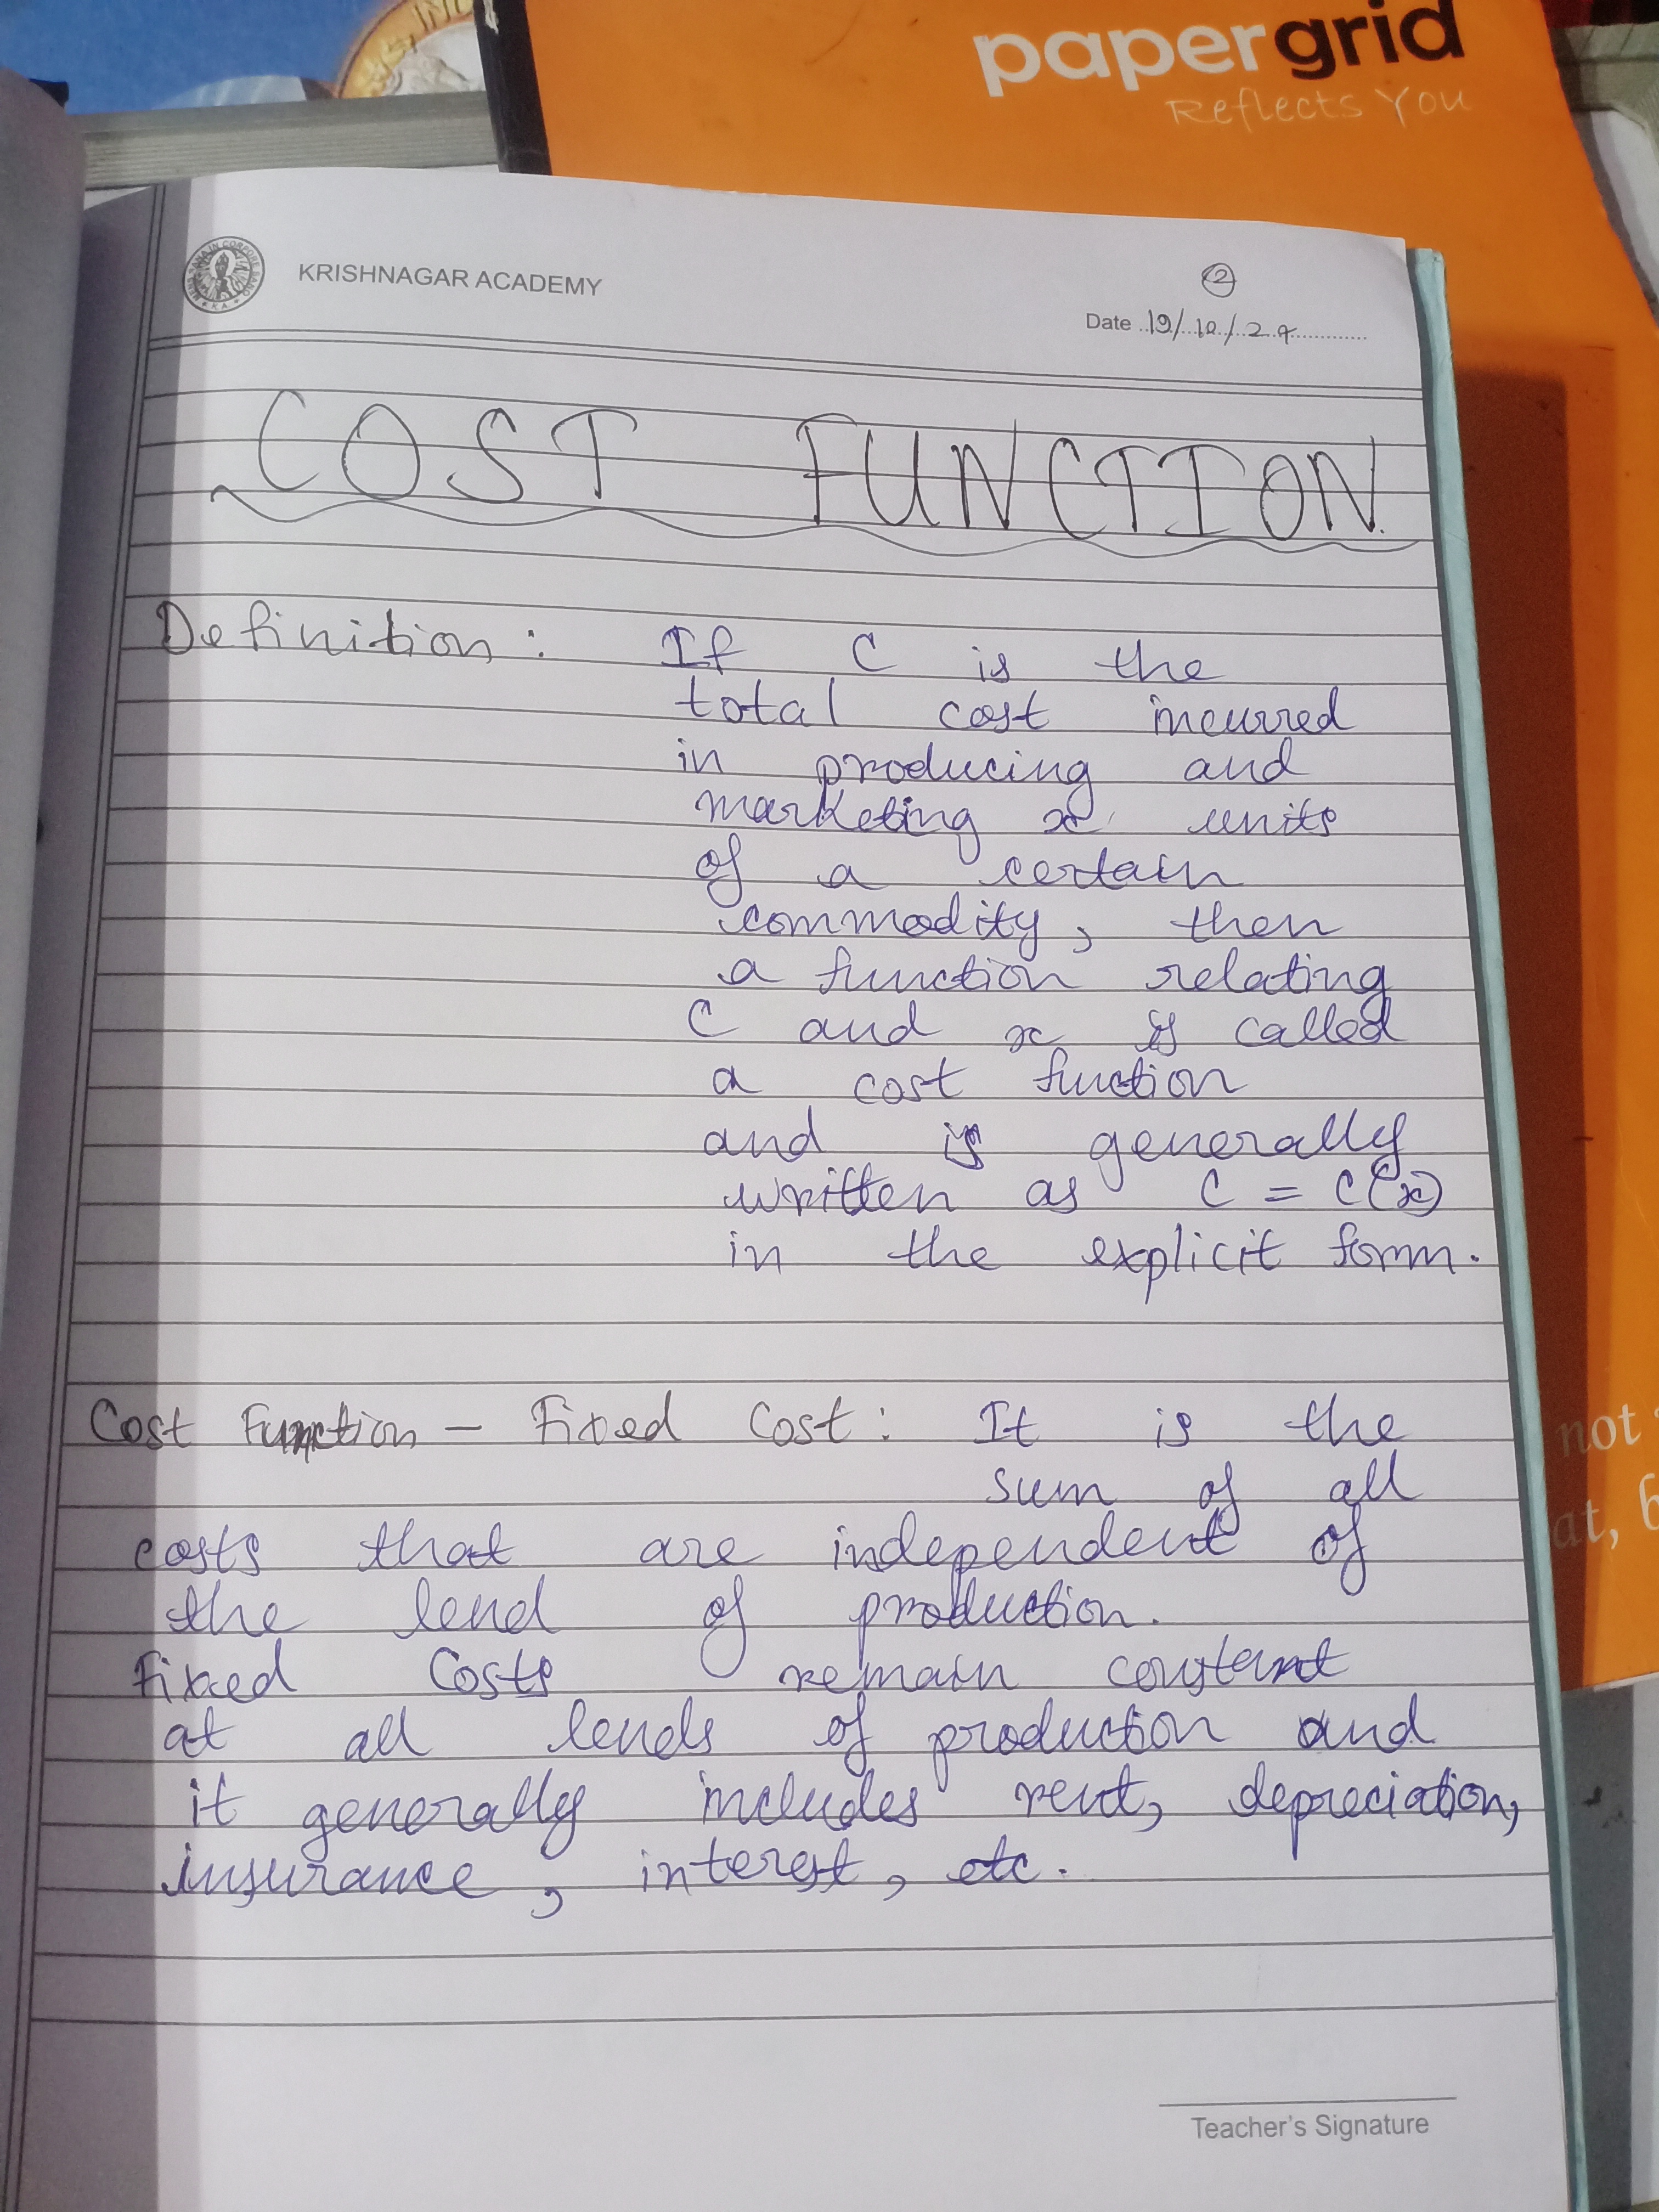 INDI
papergrid
Reflects You
KRISHNAGAR ACADEMY
2
Date 19/10/24
COST FUNCTION.
Definition: If C is the
total cost incurred
in producing and
marketing x units
of a certain
commodity, then
a function relating
C and x is called
a cost function
and is generally
written as C = C(x)
in the explicit form.
Cost Function - Fixed Cost: It is the
sum of all
costs that are independent of
the lend of production.
Fixed Costs remain constant
at all lends of production and
it generally includes rent, depreciation,
insurance, interest, etc.
not
at, b
Teacher's Signature